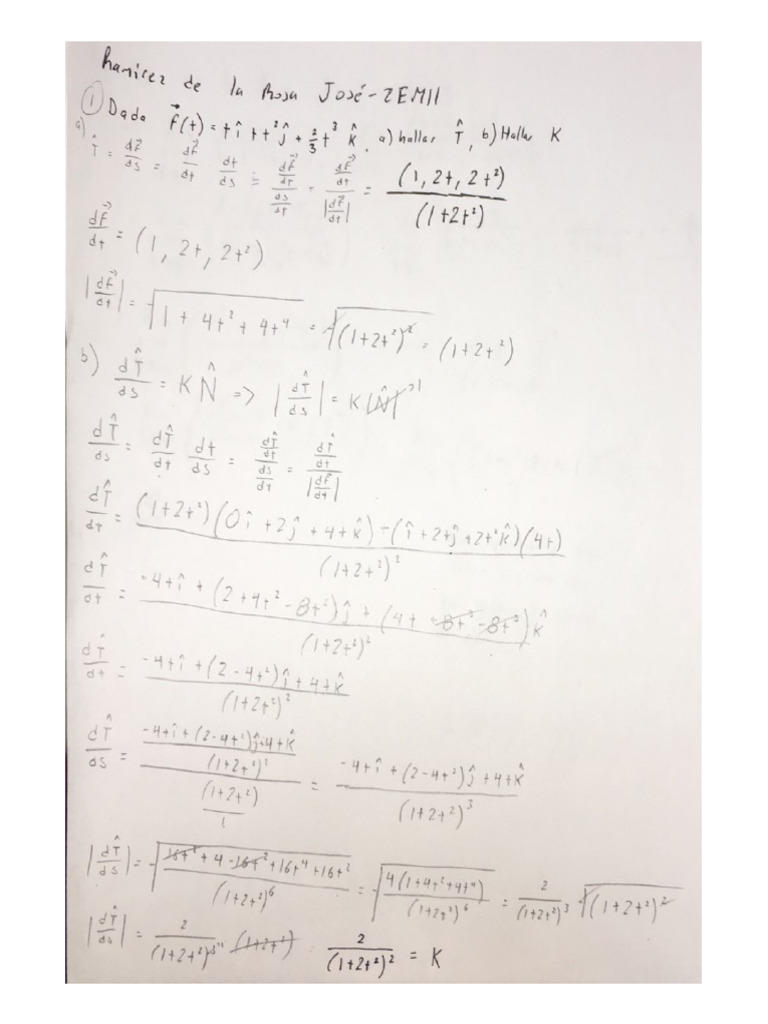 Ramirez de la Rosa José - 2EM11
① Dada r⃗(t) = t î + t² ĵ + 2/3 t³ k̂, a) hallar T̂, b) Hallar K
a) T̂ = dr⃗/ds = dr⃗/dt · dt/ds = (dr⃗/dt)/(ds/dt) = (dr⃗/dt)/|dr⃗/dt| = (1, 2t, 2t²)/(1+2t²)
dr⃗/dt = (1, 2t, 2t²)
|dr⃗/dt| = √(1 + 4t² + 4t⁴) = √((1+2t²)²) = (1+2t²)
b) dT̂/ds = K N̂ => |dT̂/ds| = K |N̂|^1
dT̂/ds = dT̂/dt dt/ds = (dT̂/dt)/(ds/dt) = (dT̂/dt)/|dr⃗/dt|
dT̂/dt = ((1+2t²)(0î + 2ĵ + 4t k̂) - (î + 2tĵ + 2t² k̂)(4t))/(1+2t²)²
dT̂/dt = (-4t î + (2 + 4t² - 8t²)ĵ + (4t + 8t³ - 8t³)k̂)/(1+2t²)²
dT̂/dt = (-4t î + (2 - 4t²)ĵ + 4t k̂)/(1+2t²)²
dT̂/ds = ((-4t î + (2-4t²)ĵ + 4t k̂)/(1+2t²)²)/((1+2t²)/1) = (-4t î + (2-4t²)ĵ + 4t k̂)/(1+2t²)³
|dT̂/ds| = √((16t² + 4 - 16t² + 16t⁴ + 16t²)/(1+2t²)⁶) = √(4(1+4t²+4t⁴)/(1+2t²)⁶) = 2/(1+2t²)³ √((1+2t²)²)
|dT̂/ds| = 2/(1+2t²)³ (1+2t²) 2/(1+2t²)² = K